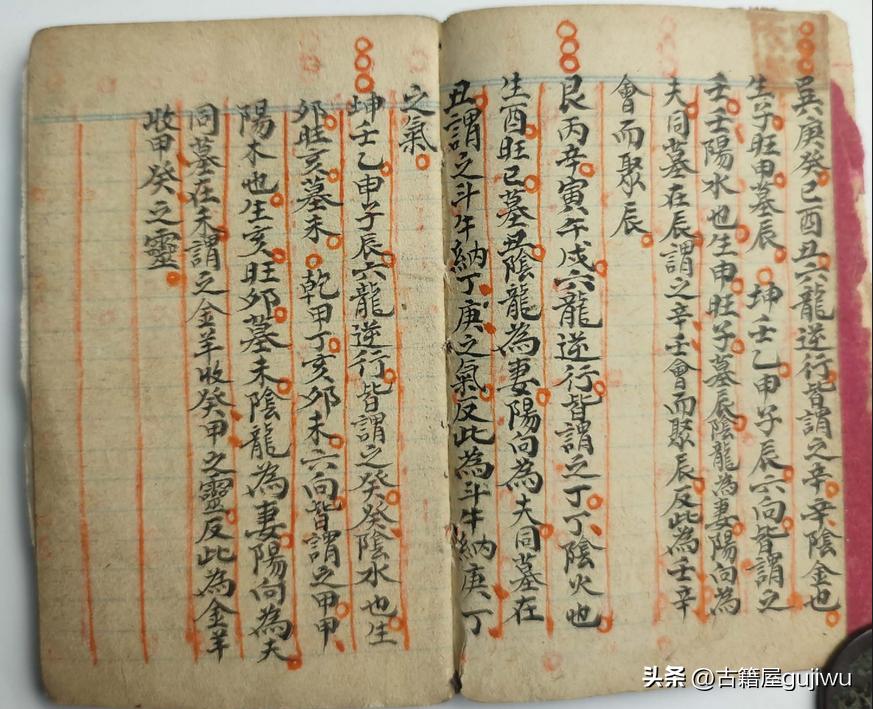 巽庚癸巳酉丑六龍逆行皆謂之辛辛陰金也
生子旺申墓辰坤壬乙申子辰六向皆謂之
壬壬陽水也生申旺子墓辰陰龍為妻陽向為
夫同墓在辰謂之辛壬會而聚辰反此為壬辛
會而聚辰
艮丙辛寅午戌六龍逆行皆謂之丁丁陰火也
生酉旺巳墓丑陰龍為妻陽向為夫同墓在
丑謂之斗牛納丁庚之氣反此為斗牛納庚丁
之氣
坤壬乙申子辰六龍逆行皆謂之癸癸陰水也生
卯旺亥墓未乾甲丁亥卯未六向皆謂之甲甲
陽木也生亥旺卯墓未陰龍為妻陽向為夫
同墓在未謂之金羊收癸甲之靈反此為金羊
收甲癸之靈
头条 @古籍屋gujiwu